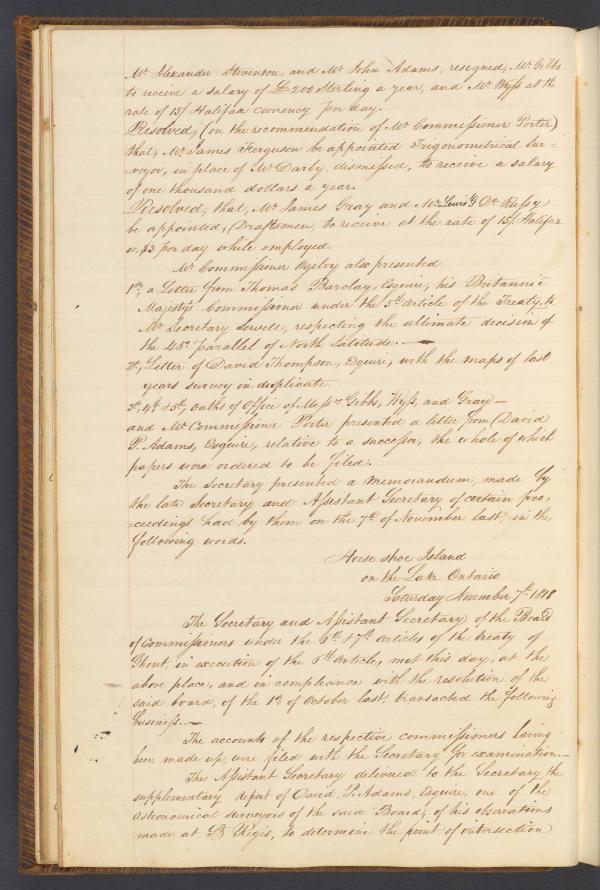 Mr Alexander Stevenson, and Mr John Adams, resigned, Mr Gibbs
to receive a salary of £200 Sterling a year, and Mr Wyss at the
rate of 15/ Halifax currency per day.
Resolved, (on the recommendation of Mr Commissioner Porter)
that, Mr James Ferguson be appointed Trigonometrical Sur=
=veyor, in place of Mr Darby dismissed, to receive a salary
of one thousand dollars a year.
Resolved, that, Mr James Gray and Mr Lewis G De Russy
be appointed, Draftsmen, to receive at the rate of 15/. Halifax
or, $3 per day while employed.
Mr Commissioner Ogilvy also presented
1st, a Letter from Thomas Barclay, Esquire, his Britannic
Majestys Commissioner under the 5th article of the Treaty, to
Mr Secretary Sewell, respecting the ultimate decision of
the 45o parallel of North Latitude.
2d, Letter of David Thompson, Esquire, with the maps of last
years survey in duplicate.
3d, 4th & 5th, Oaths of Office of Messrs Gibbs, Wyss, and Gray—
and Mr Commissioner Porter presented a letter from David
P. Adams, Esquire, relative to a successor, the whole of which
papers were ordered to be filed.
The Secretary presented a memorandum, made by
the late Secretary and Assistant Secretary of certain pro=
=ceedings had by them on the 7th of November last, in the
following words.
Horse shoe Island
on the Lake Ontario
Saturday November 7th 1818
The Secretary and Assistant Secretary of the Board
of Commissioners under the 6th & 7th articles of the treaty of
Ghent, in execution of the 6th Article, met this day, at the
above place, and in compliance with the resolution of the
said board, of the 1st of October last, transacted the following
business.—
The accounts of the respective commissioners having
been made up, were filed with the Secretary for examination.—
The Assistant Secretary delivered to the Secretary the
supplementary report of David P. Adams, Esquire, one of the
astronomical surveyors of the said Board, of his observations
made at St Regis, to determine the point of intersection